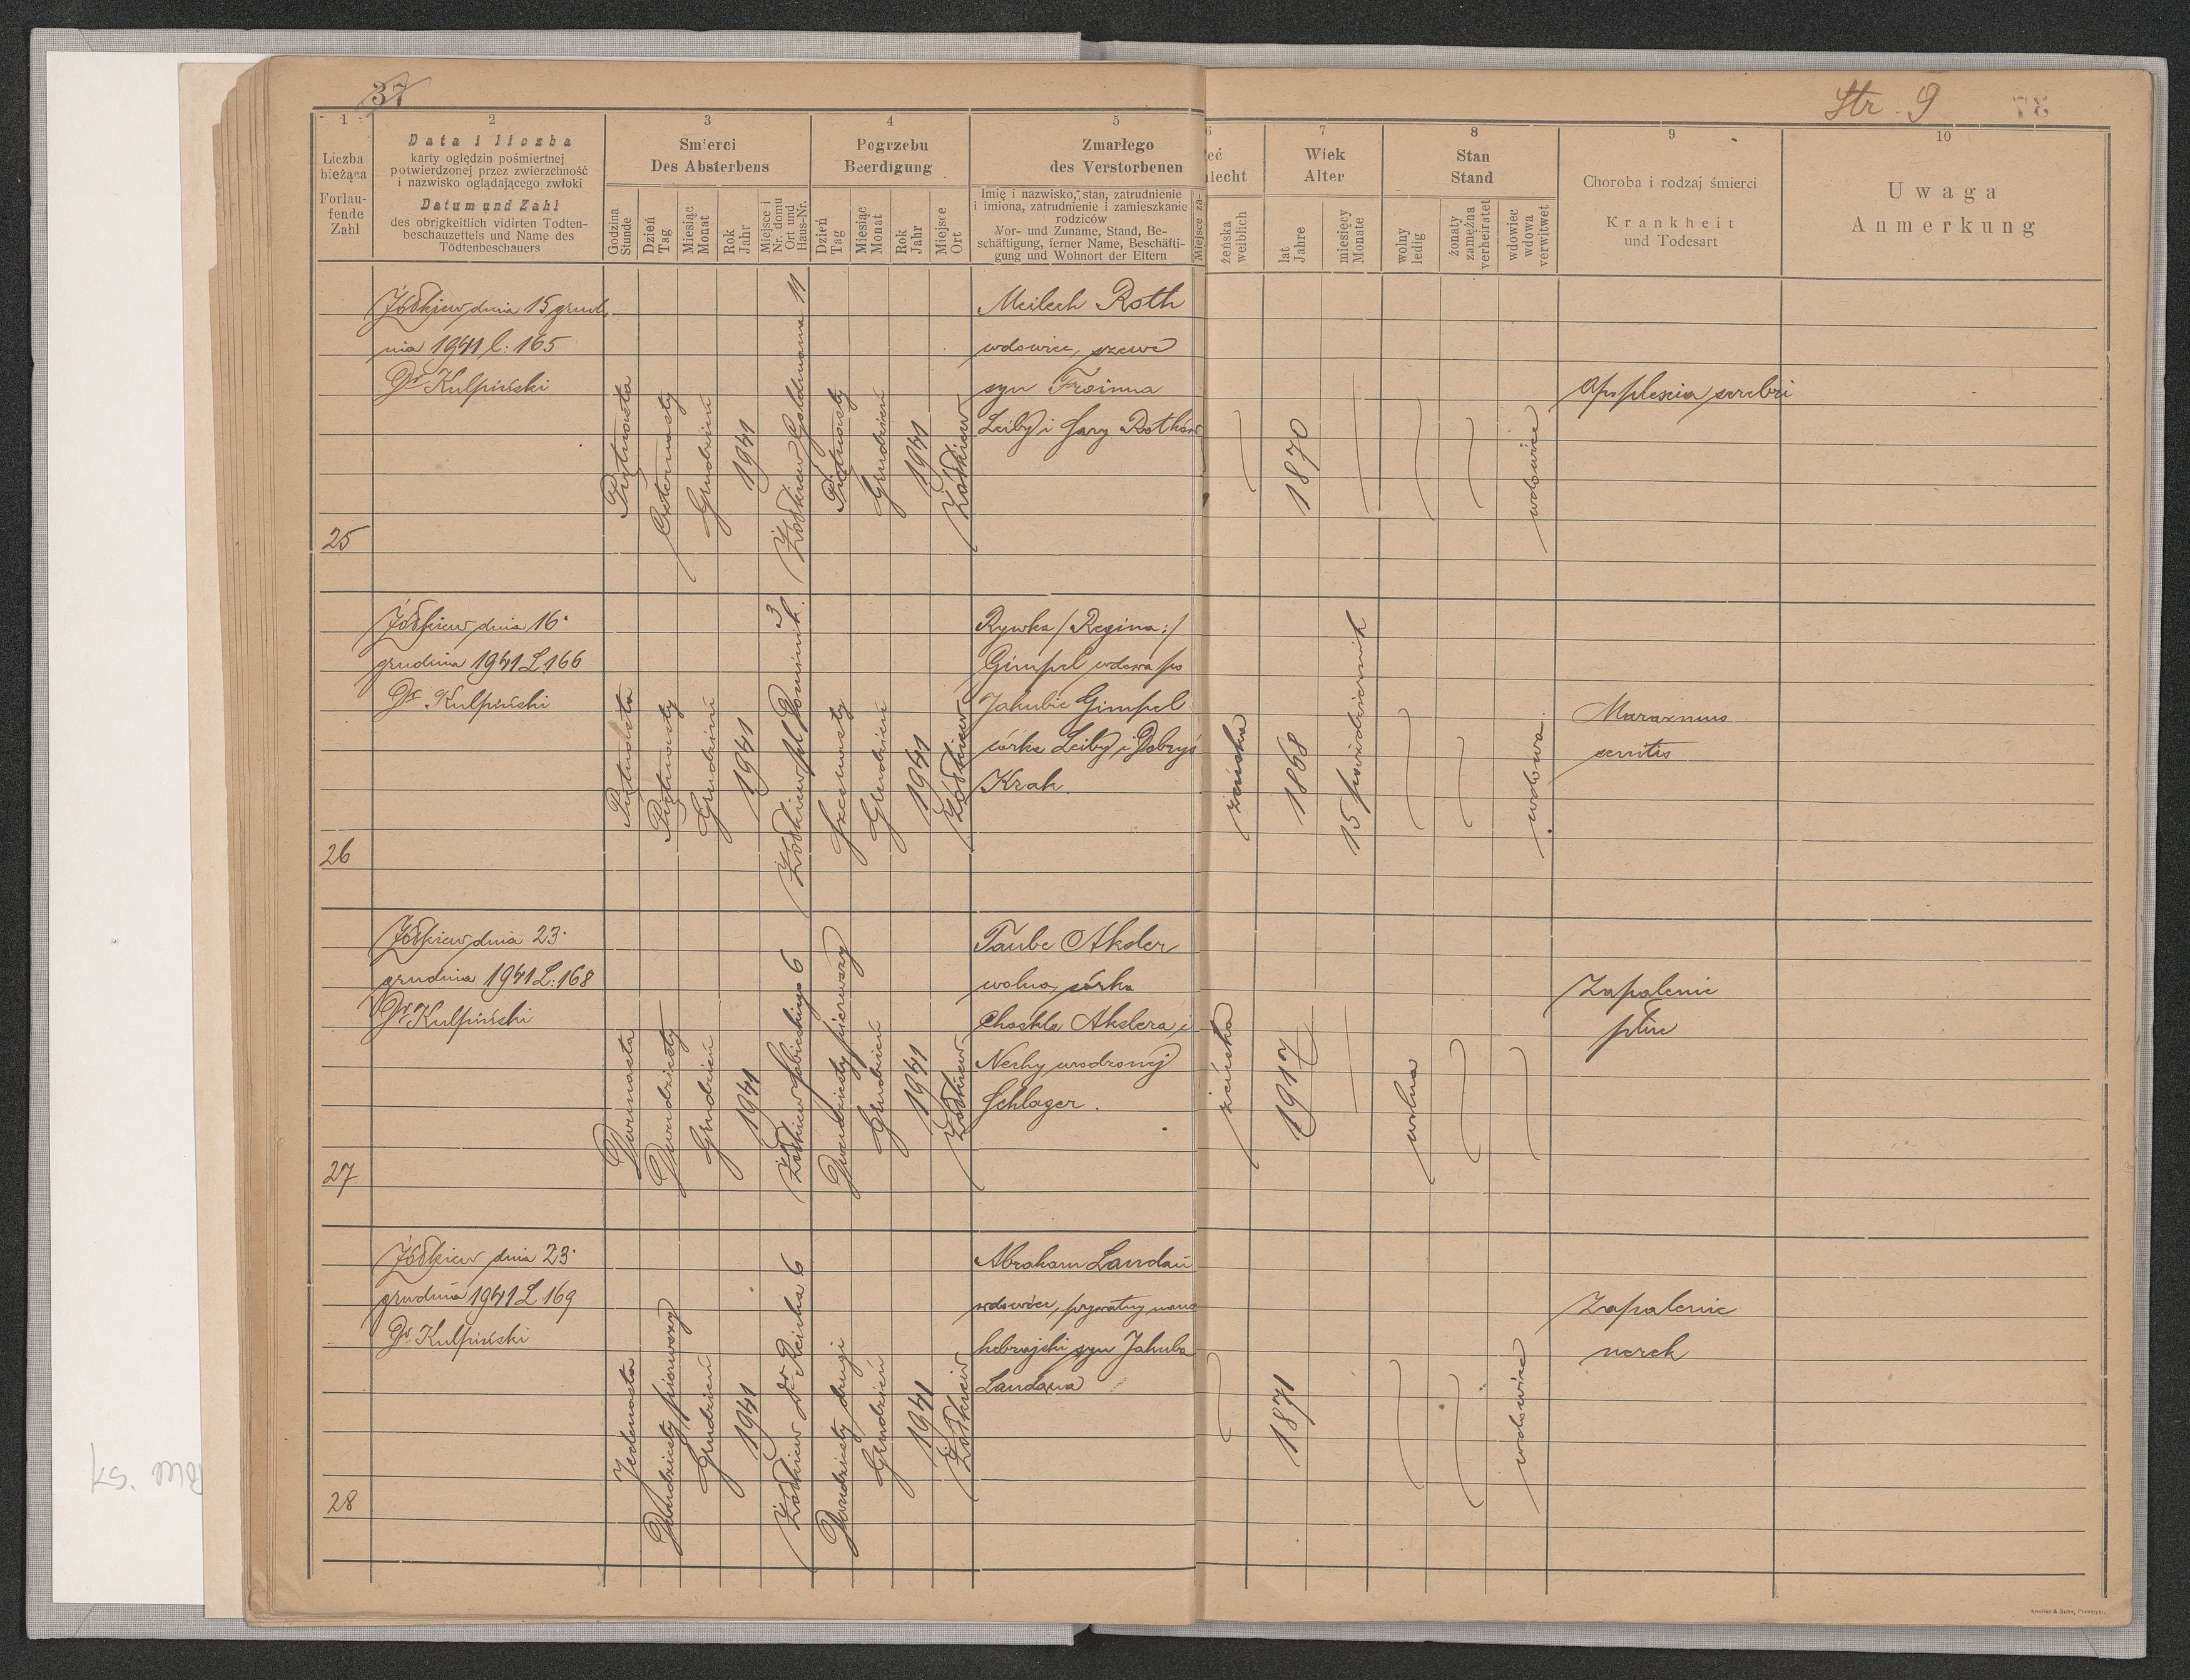 37
Str. 9
37
1
2
3
4
5
6
7
8
9
10
Liczba
bieżąca
Forlau-
fende
Zahl
Data i liczba
karty oględzin pośmiertnej
potwierdzonej przez zwierzchność
i nazwisko oglądającego zwłoki
Datum und Zahl
des obrigkeitlich vidirten Todten-
beschauzettels und Name des
Tödtenbeschauers
Smierci
Des Absterbens
Godzina
Stunde
Dzień
Tag
Miesiąc
Monat
Rok
Jahr
Miejsce i
Nr. domu
Ort und
Haus-Nr.
Pogrzebu
Beerdigung
Dzień
Tag
Miesiąc
Monat
Rok
Jahr
Miejsce
Ort
Zmarłego
des Verstorbenen
Imię i nazwisko, stan, zatrudnienie
i imiona, zatrudnienie i zamieszkanie
rodziców
Vor- und Zuname, Stand, Be-
schäftigung, ferner Name, Beschäfti-
gung und Wohnort der Eltern
Miejsce za-
eć
lecht
żeńska
weiblich
Wiek
Alter
lat
Jahre
miesięcy
Monate
Stan
Stand
wolny
ledig
żonaty
zamężna
verheiratet
wdowiec
wdowa
verwitwet
Choroba i rodzaj śmierci
Krankheit
und Todesart
Uwaga
Anmerkung
25
Żółkiew dnia 15 grud
nia 1941 l: 165
Dr Kulpiński
Piętnasta
Czternasty
Grudzień
1941
Żółkiew Goldmana 11
Piętnasty
Grudzień
1941
Żółkiew
Meilech Roth
wdowiec, szewc
syn Froima
Leiby i Sary Rothów
1870
wdowiec
Apoplexia cerebri
26
Żółkiew dnia 16
grudnia 1941 L. 166
Dr Kulpiński
Piętnasta
Piętnasty
Grudzień
1941
Żółkiew pl. Dominik. 3
Szesnasty
Grudzień
1941
Żółkiew
Rywka /Regina:/
Gimpel wdowa po
Jakubie Gimpel
córka Leiby i Dobryś
Krak.
żeńska
1868
15 październik
wdowa
Marasmus
senilis
27
Żółkiew dnia 23
grudnia 1941 L: 168
Dr Kulpiński
Dwunasta
Dwudziesty
Grudzień
1941
Żółkiew Sobieskiego 6
Dwudziesty pierwszy
Grudzień
1941
Żółkiew
Taube Aksler
wolna, córka
Chaskla Akslera i
Neshy urodzonej
Schlager.
żeńska
1917
wolna
Zapalenie
płuc
28
Żółkiew dnia 23
grudnia 1941 L 169
Dr Kulpiński
Jedenasta
Dwudziesty pierwszy
Grudzień
1941
Żółkiew Dr Reicha 6
Dwudziesty drugi
Grudzień
1941
Żółkiew
Abraham Landau
wdowiec, prywatny naucz
hebrajski syn Jakuba
Landaua
1871
wdowiec
Zapalenie
nerek